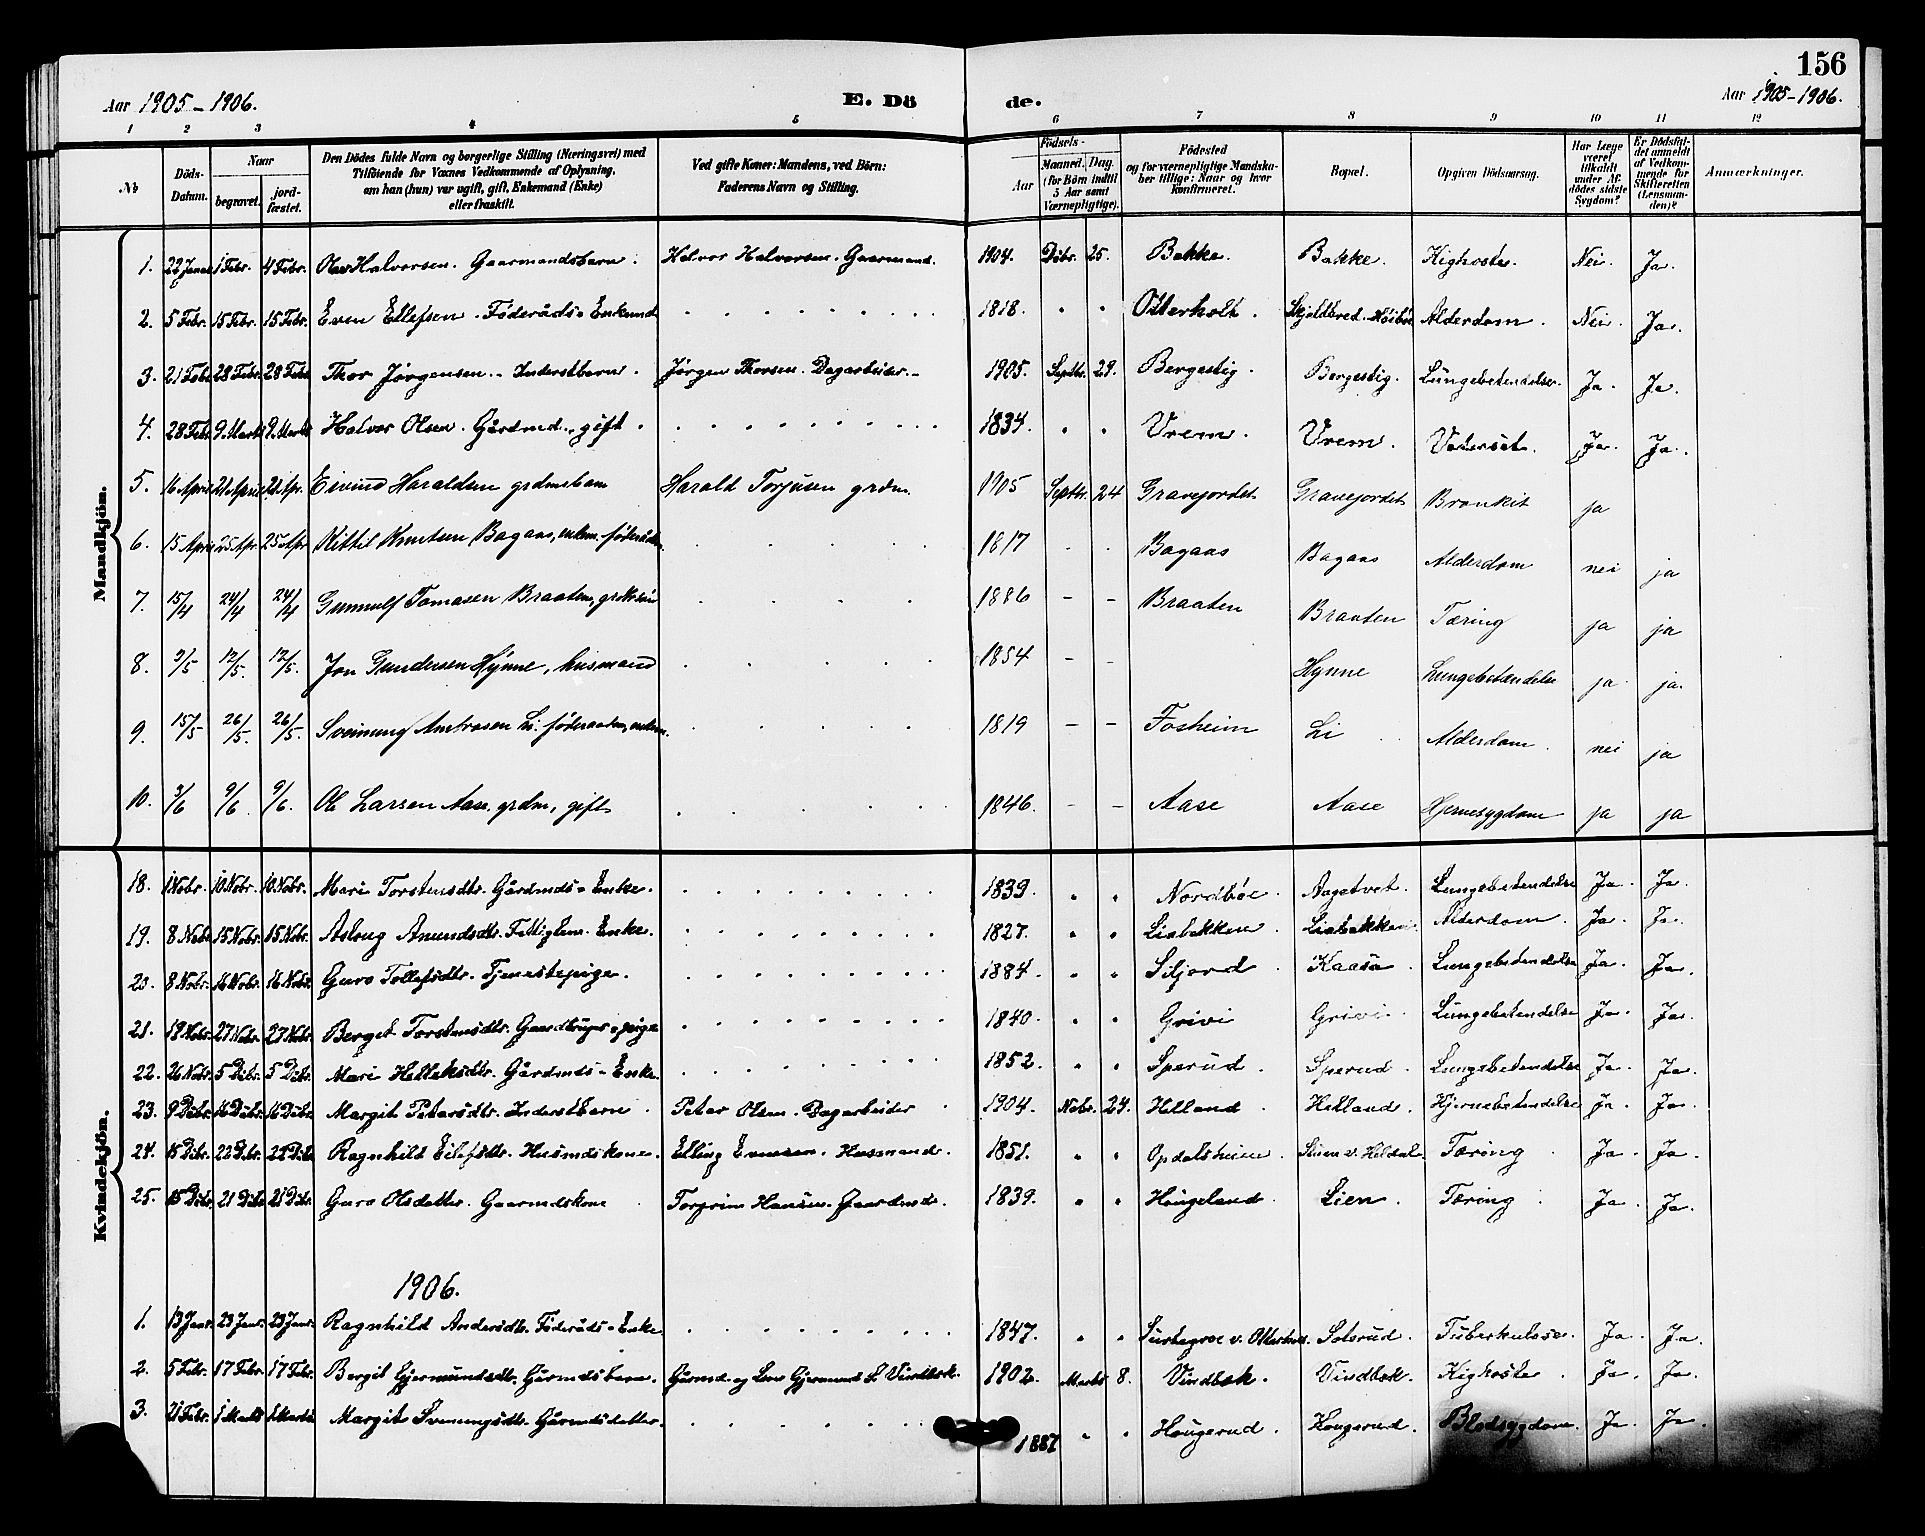 156
Aar 1905-1906. E. Dö de. Aar 1905-1906.
1 2 3 4 5 6 7 8 9 10 11 12
No Döds-Datum. Naar begravet. jord-fæstet. Den Dödes fulde Navn og borgerlige Stilling (Næringsvei) med Tilföiende for Voxnes Vedkommende af Oplysning, om han (hun) var ugift, gift, Enkemand (Enke) eller fraskilt. Ved gifte Koner: Mandens, ved Börn: Faderens Navn og Stilling. Födsels- Aar Maaned. Dag. (for Börn indtil 5 Aar samt Værnepligtige). Födested og for værnepligtige Mandskaber tillige: Naar og hvor Konfirmeret. Bopæl. Opgiven Dödsaarsag. Har Læge været tilkaldt under Afdödes sidste Sygdom? Er Dödsfaldet anmeldt af Vedkommende for Skifteretten (Lensmanden)? Anmærkninger.
Mandkjön.
1. 1 Febr. 4 Febr. Halvorsen. Gaarmandsbarn. Halvor Halvorsen. Gaarmand. 1904. Dsbr. 25. Bakke. Bakke. Kighoste. Nei. Ja.
2. 5 Febr. 15 Febr. 15 Febr. Even Ellefsen. Föderåds-Enkemd. 1818. " " Otterholt. Alderdom. Nei. Ja.
3. 21 Febr. 28 Febr. 28 Febr. Thor Jørgensen. Inderstbarn. Jørgen Thorsen. Dagarbeider. 1905. Septbr. 29. Bergestig. Bergestig. Lungebetendelse. Ja. Ja.
4. 28 Febr. 9. Marts 9. Marts Halvor Olsen. Gårdmd., gift. 1834. " " Vrem. Vrem. Ja. Ja.
5. 16 April 21 April 21 Apr. Eivind Haraldsen grdmsbarn Harald Torjusen grdm. 1905 Septbr. 24 Gravejordet Gravejordet Bronkit ja
6. 15 April 25 Apr. 25 Apr Kittil Knutsen Bagaas, enkem. 1817 - - Bagaas Bagaas Alderdom nei ja
7. 15/4 24/4 24/4 Gunnulf Tomasen Braaten, 1886 - - Braaten Braaten Tæring ja ja
8. 9/5 12/5. 12/5. Jon Gundersen Hynne, husmand 1854 - - Hynne Lungebetændelse ja ja.
9. 15/5 26/5. 26/5. Sveinung Li. föderaadm, enkem. 1819 - - Fosheim Li Alderdom. nei ja
10. 3/6 9/6 9/6. Ole Larsen Aase, grdm, gift 1846. - - Aase Aase Hjernesygdom ja ja
Kvindekjön.
18. 1 Nobr. 10 Nobr. 10 Nobr. Mari Torstensdtr. Gårdmds-Enke. 1839. " " Nordbøe. Aagetvet. Lungebetendelse Ja. Ja.
19. 8 Nobr. 15 Nobr. 15 Nobr. Aslaug Amundsdtr. Fattiglem. Enke. 1827. " " Liabakken. Liabakken. Alderdom. Ja. Ja.
20. 8 Nobr. 16 Nobr. 16 Nobr. Guro Tollefsdtr. Tjenestepige. 1884. " " Siljord. Kaasa. Lungebetendelse Ja. Ja.
21. 18 Nobr. 27 Nobr. 27 Nobr. Berget Torstensdtr. 1840. " " Grivi Grivi. Lungebetendelse Ja. Ja.
22. 26 Nobr. 5 Dsbr. 5 Dsbr. Mari Helleksdtr. Gårdmds-Enke. 1852. " " Sperud. Sperud. Lungebetendelse Ja. Ja.
23. 9 Dsbr. 16 Dsbr. 16 Dsbr. Margit Petersdtr. Inderstbarn. Peter Olsen. Dagarbeider 1904. Nobr. 24. Helland. Helland. Hjernebetendelse Ja. Ja.
24. 15 Dsbr. 22 Dsbr. 22 Dsbr. Ragnhild Eilefsdtr. Husmdskone. Elling Evensen. Husmand. 1851. " " Opdalsheien. Tæring. Ja. Ja.
25. 15 Dsbr. 21 Dsbr. 21 Dsbr. Guro Olsdatter. Gaarmdskone Torgrim Hansen. Gaardmd. 1839. " " Haugeland. Lien. Tæring. Ja. Ja.
1906.
1. 13 Janr. 23 Janr. 23 Janr. Ragnhild Andersdtr. Föderåds-Enke. 1847. " " Solerud. Tuberkulose. Ja. Ja.
2. 5 Febr. 17 Febr. 17 Febr. Bergit Gjermundsdtr. Gårmdsbarn. Gårmd. og Gjermund Vindbek. 1902. Marts 8. Vindbek. Vindbek. Kighoste. Ja. Ja.
3. 21 Febr. 1 Marts 1 Marts Margit Sveinungsdtr. Gårmdsdatter. 1887 " " Haugerud. Haugerud. Blodsygdom. Ja. Ja.